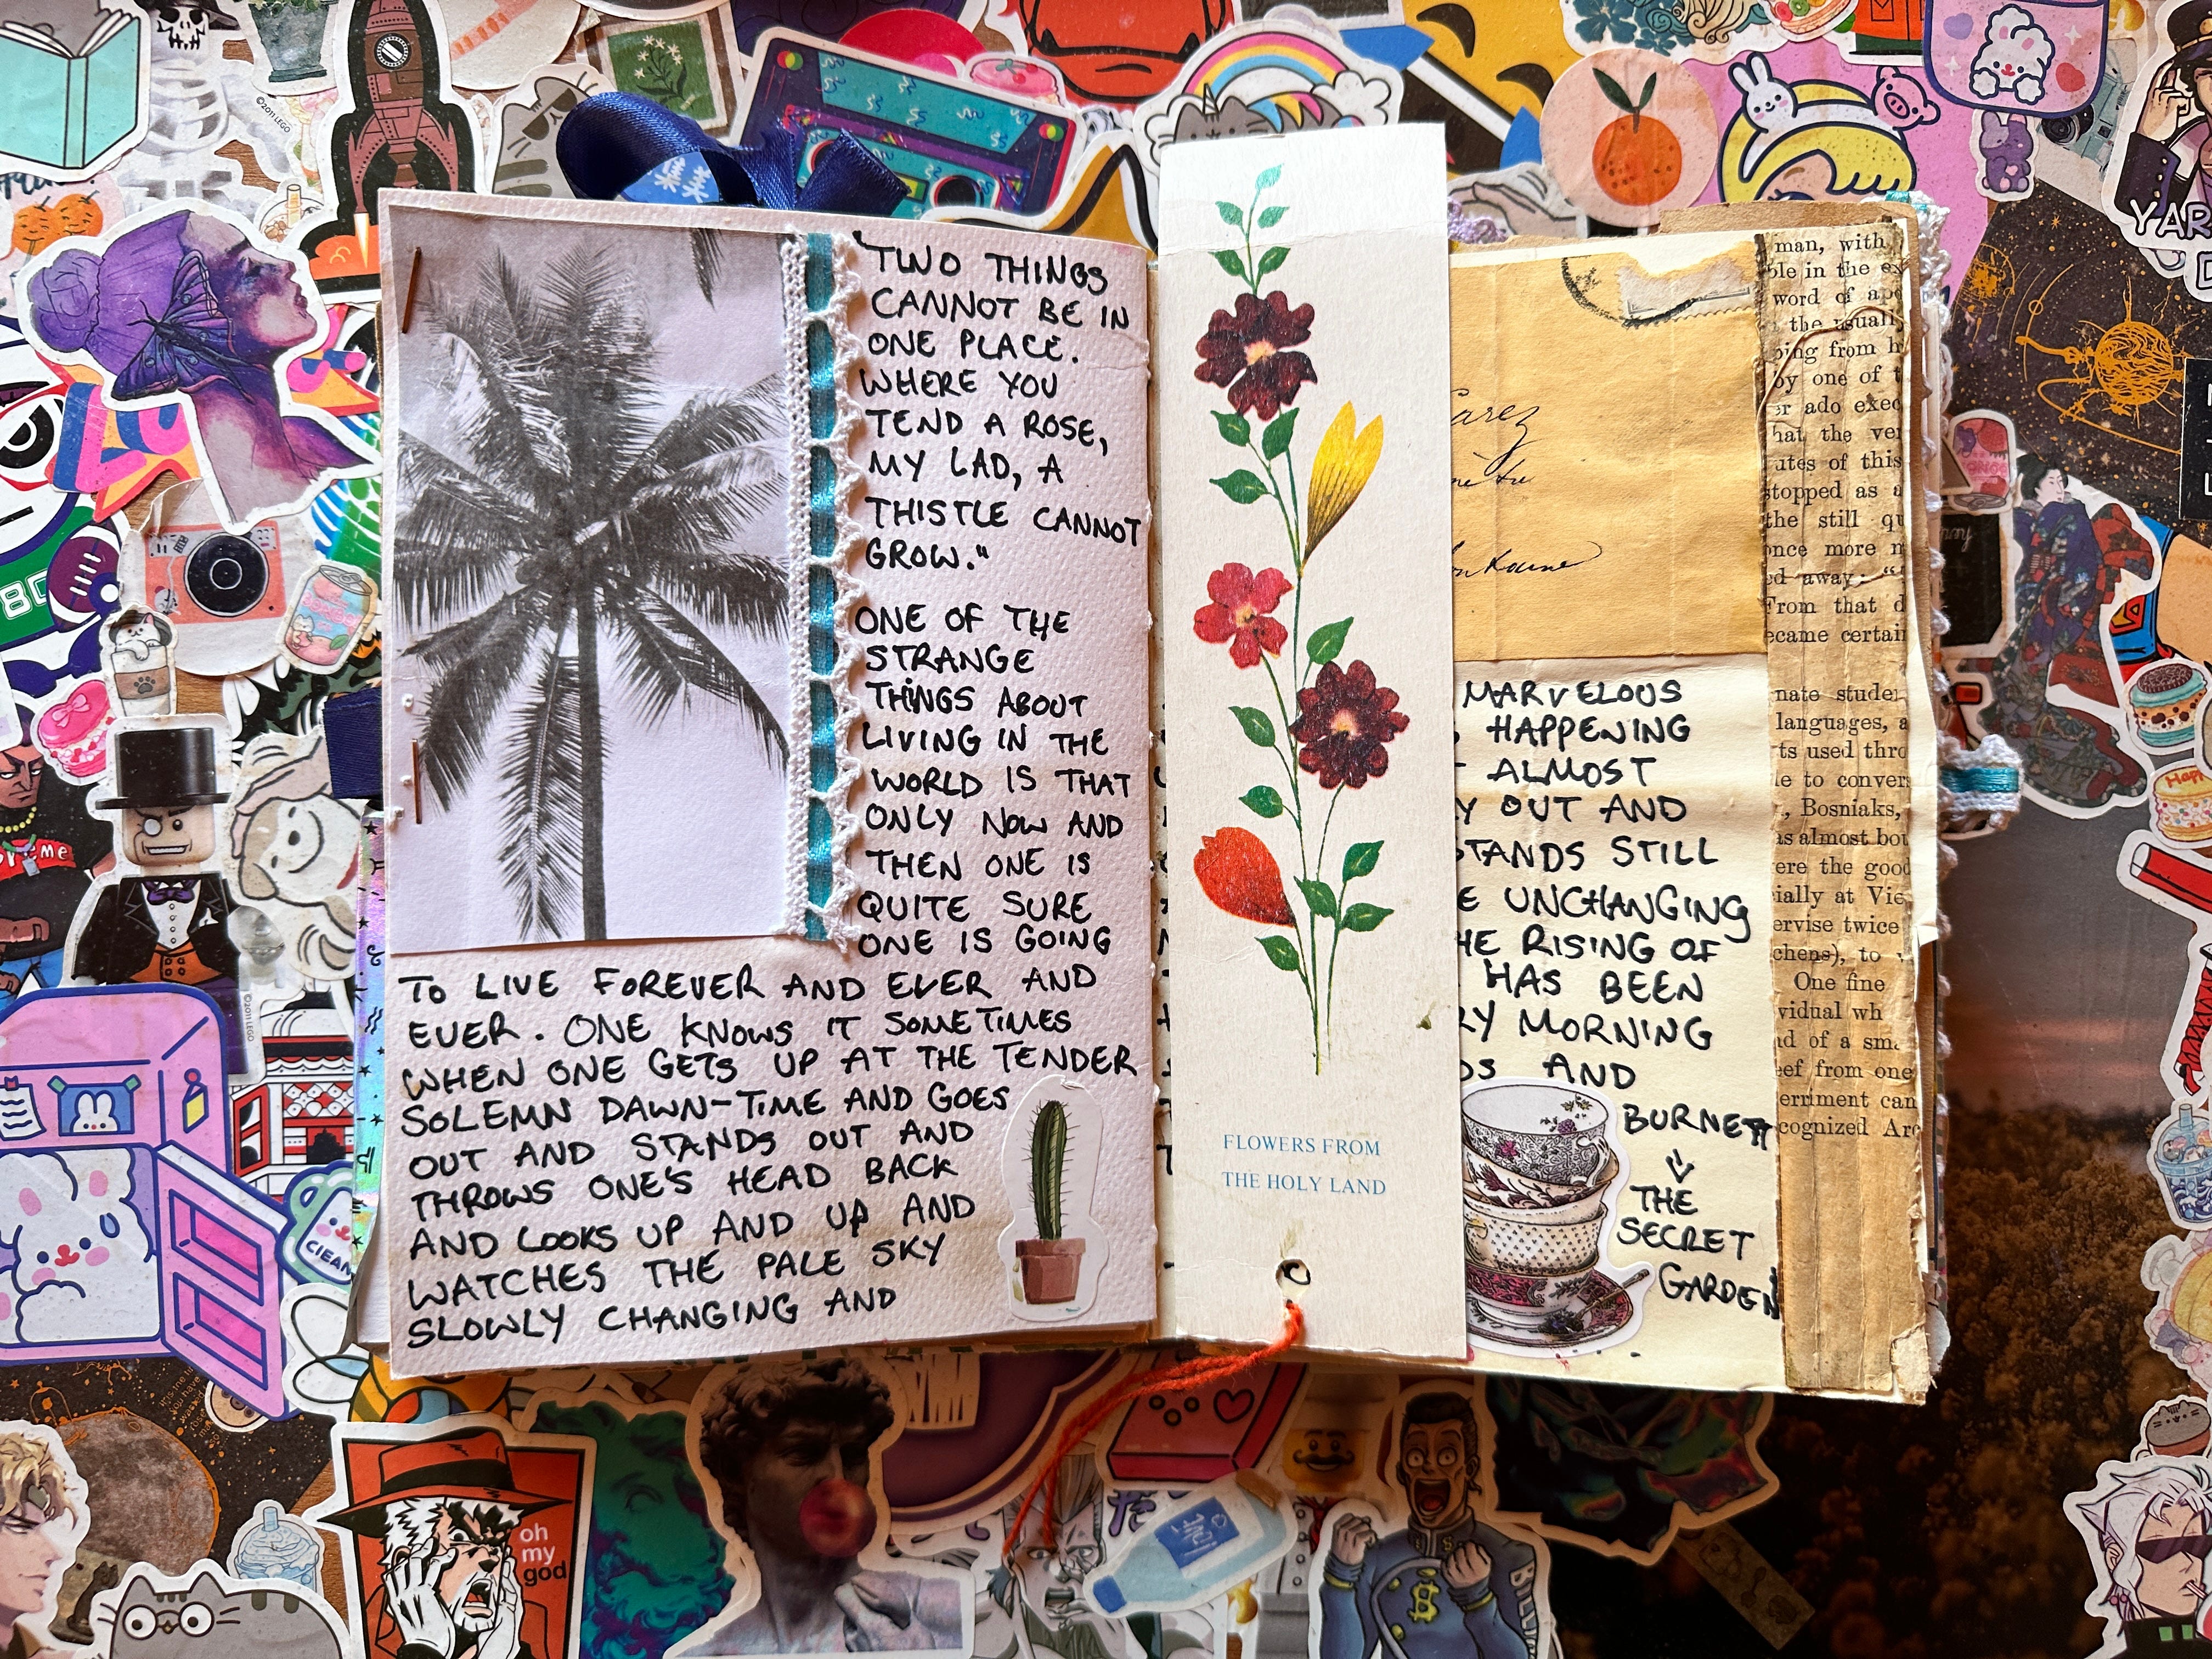 "TWO THINGS
CANNOT BE IN
ONE PLACE.
WHERE YOU
TEND A ROSE,
MY LAD, A
THISTLE CANNOT
GROW."
ONE OF THE
STRANGE
THINGS ABOUT
LIVING IN THE
WORLD IS THAT
ONLY NOW AND
THEN ONE IS
QUITE SURE
ONE IS GOING
TO LIVE FOREVER AND EVER AND
EVER. ONE KNOWS IT SOMETIMES
WHEN ONE GETS UP AT THE TENDER
SOLEMN DAWN-TIME AND GOES
OUT AND STANDS OUT AND
THROWS ONE'S HEAD BACK
AND LOOKS UP AND UP AND
WATCHES THE PALE SKY
SLOWLY CHANGING AND
FLOWERS FROM
THE HOLY LAND
MARVELOUS
HAPPENING
ALMOST
OUT AND
STANDS STILL
UNCHANGING
RISING OF
HAS BEEN
MORNING
AND
BURNETT
THE
SECRET
GARDEN
man, with
in the
word of
the usually
from
by one of
ado
that the
of this
stopped as a
the still
once more
away:
From that
became
languages, a
used
to
Bosniaks,
as almost
were the good
at
twice
to
One fine
wh
of a
from one
can
©2011 LEGO
©2011 LEGO
CLEAN
oh
my
god
YAR
80